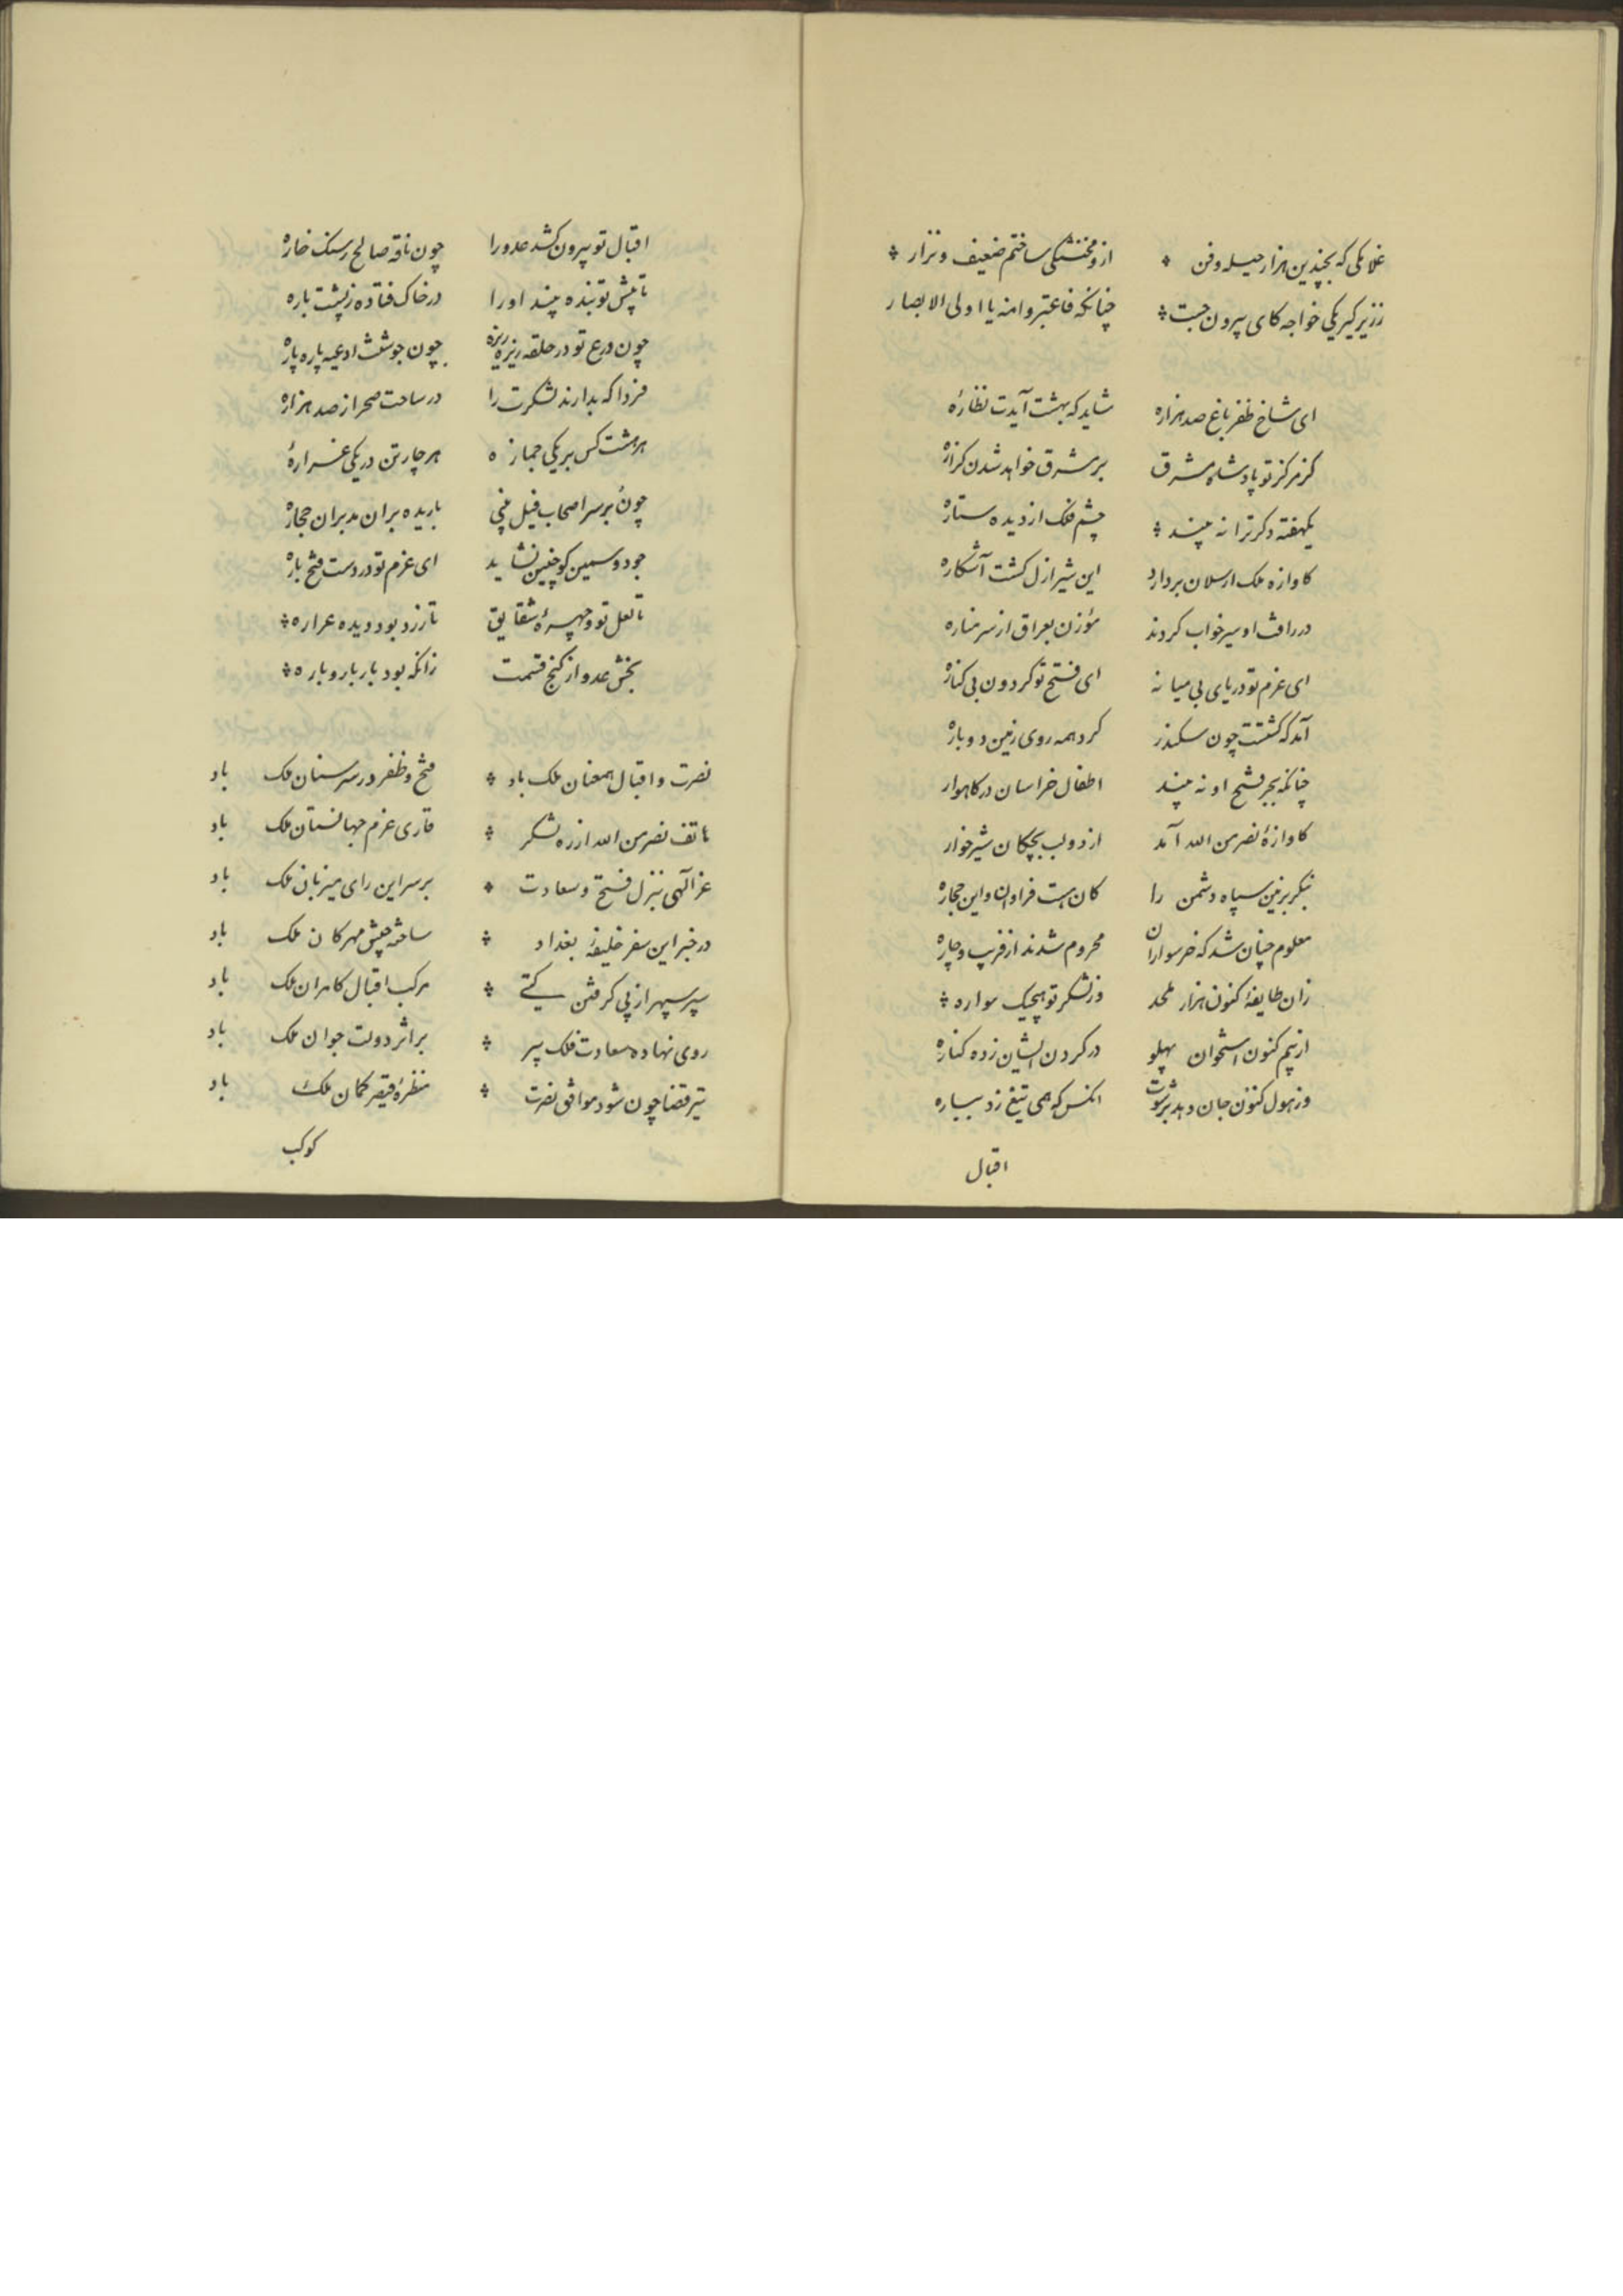 غلامکی که بچندین هزار حیله و فن ازو مخنثکی ساختم ضعیف و نزار
ززیر کیر یکی خواجه کای بیرون جست چنانکه فاعتبروا منه یا اولی الابصار
ای شاخ ظفر باغ صد هزاره شاید که بهشت آیدت نظاره
کز مرکز تو پادشاه مشرق بر مشرق خواهد شدن کرازه
یکهفته دکر ترا نه بیند چشم فلک از دیده ستاره
کاوازه ملک ارسلان بردارد این شیر ازل کشت آشکاره
در رافت او سیر خواب کردند مؤذن بعراق از سر مناره
ای عزم تو دریای بی میانه ای فتح تو کردون بی کناره
آمد که کشتت چون سکندر کرد همه روی زمین دوباره
چنانکه بجز فتح او نه بیند اطفال خراسان در کاهوار
کاوازهٔ نصر من الله آمد از دو لب بچکان شیرخوار
بنکر بزمین سپاه دشمن را کان هست فراوان و این حجاره
معلوم چنان شد که خرسواران محروم شدند از فریب و چاره
زان طایفهٔ کنون هزار ملحد وز لشکر تو هیچیک سواره
از بیم کنون استخوان پهلو در کردن ایشان زده کناره
وز هول کنون جان دهد بزشت انکس که همی تیغ زد بیباره
اقبال
اقبال تو بیرون کشد عدو را چون ناقه صالح ز سنک خاره
تا پیش تو بنده بیند او را در خاک فتاده ز پشت باره
چون درع تو در حلقه ریزه ریزه چون جوشنت ادعیه پاره پاره
فردا که بدارند لشکرت را در ساحت صحرا ز صد هزاره
هر هشت کس بر یکی جمازه هر چار تن در یکی غراره
چون بر سر اصحاب فیل بینی باریده بران مدبران حجاره
جود و سمین کو چنین نشاید ای عزم تو در دست فتح باره
تا لعل تو و چهرهٔ شقایق تا زرد بود دیده عراره
بخش عدو از کنج قسمت زانکه بود بار بار و باره
نصرت و اقبال همعنان ملک باد فتح و ظفر در سر سنان ملک باد
هاتف نصر من الله از ره لشکر قاری عزم جهانستان ملک باد
عز آلهی بنزل فتح و سعادت بر سر این رای میزبان ملک باد
در خبر این سفر خلیفهٔ بغداد ساخته جیش مهرکان ملک باد
سیر سپهر از پی کرفتن کیتی مرکب اقبال کامران ملک باد
روی نهاده سعادت فلک پیر بر اثر دولت جوان ملک باد
تیر قضا چون شود موافق نصرت منظرهٔ قیصر کمان ملک باد
کوکب